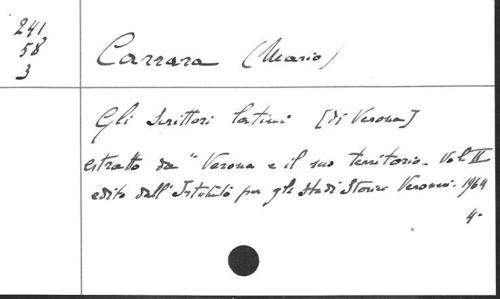 241
58
3
Carrara (Mario)
Gli Scrittori latini [di Verona]
estratto da "Verona e il suo territorio - Vol II
edito dall'Istituto per gli Studi Storici Veronesi - 1964
4°